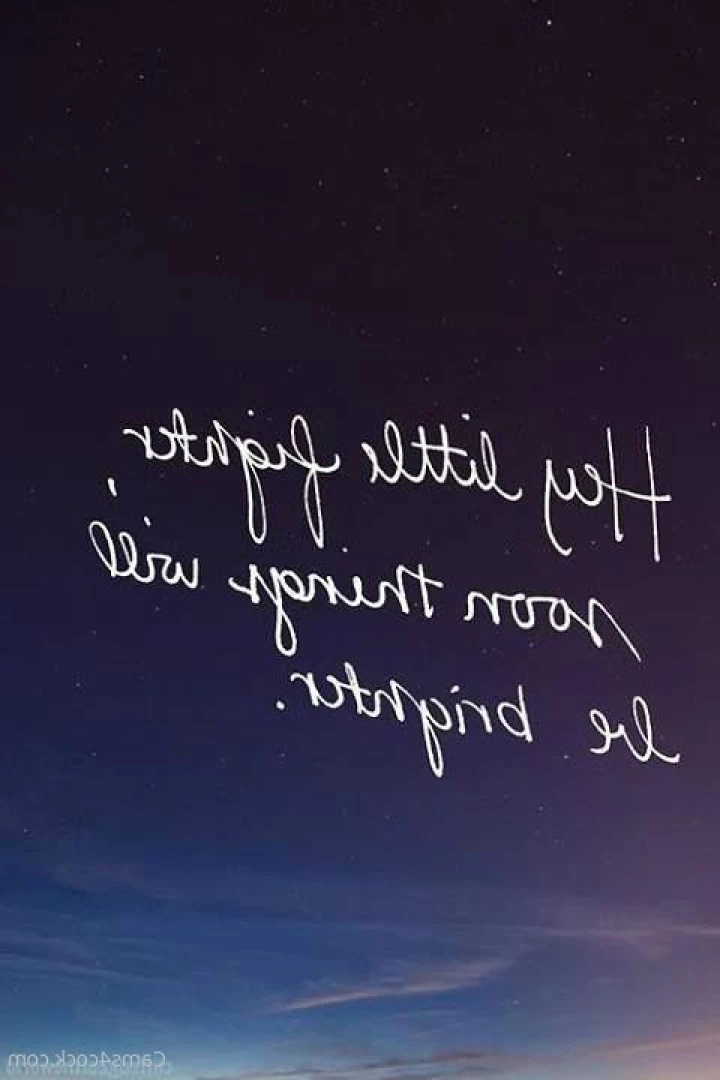 Hey little fighter,
soon things will
be brighter.
Cams4cock.com